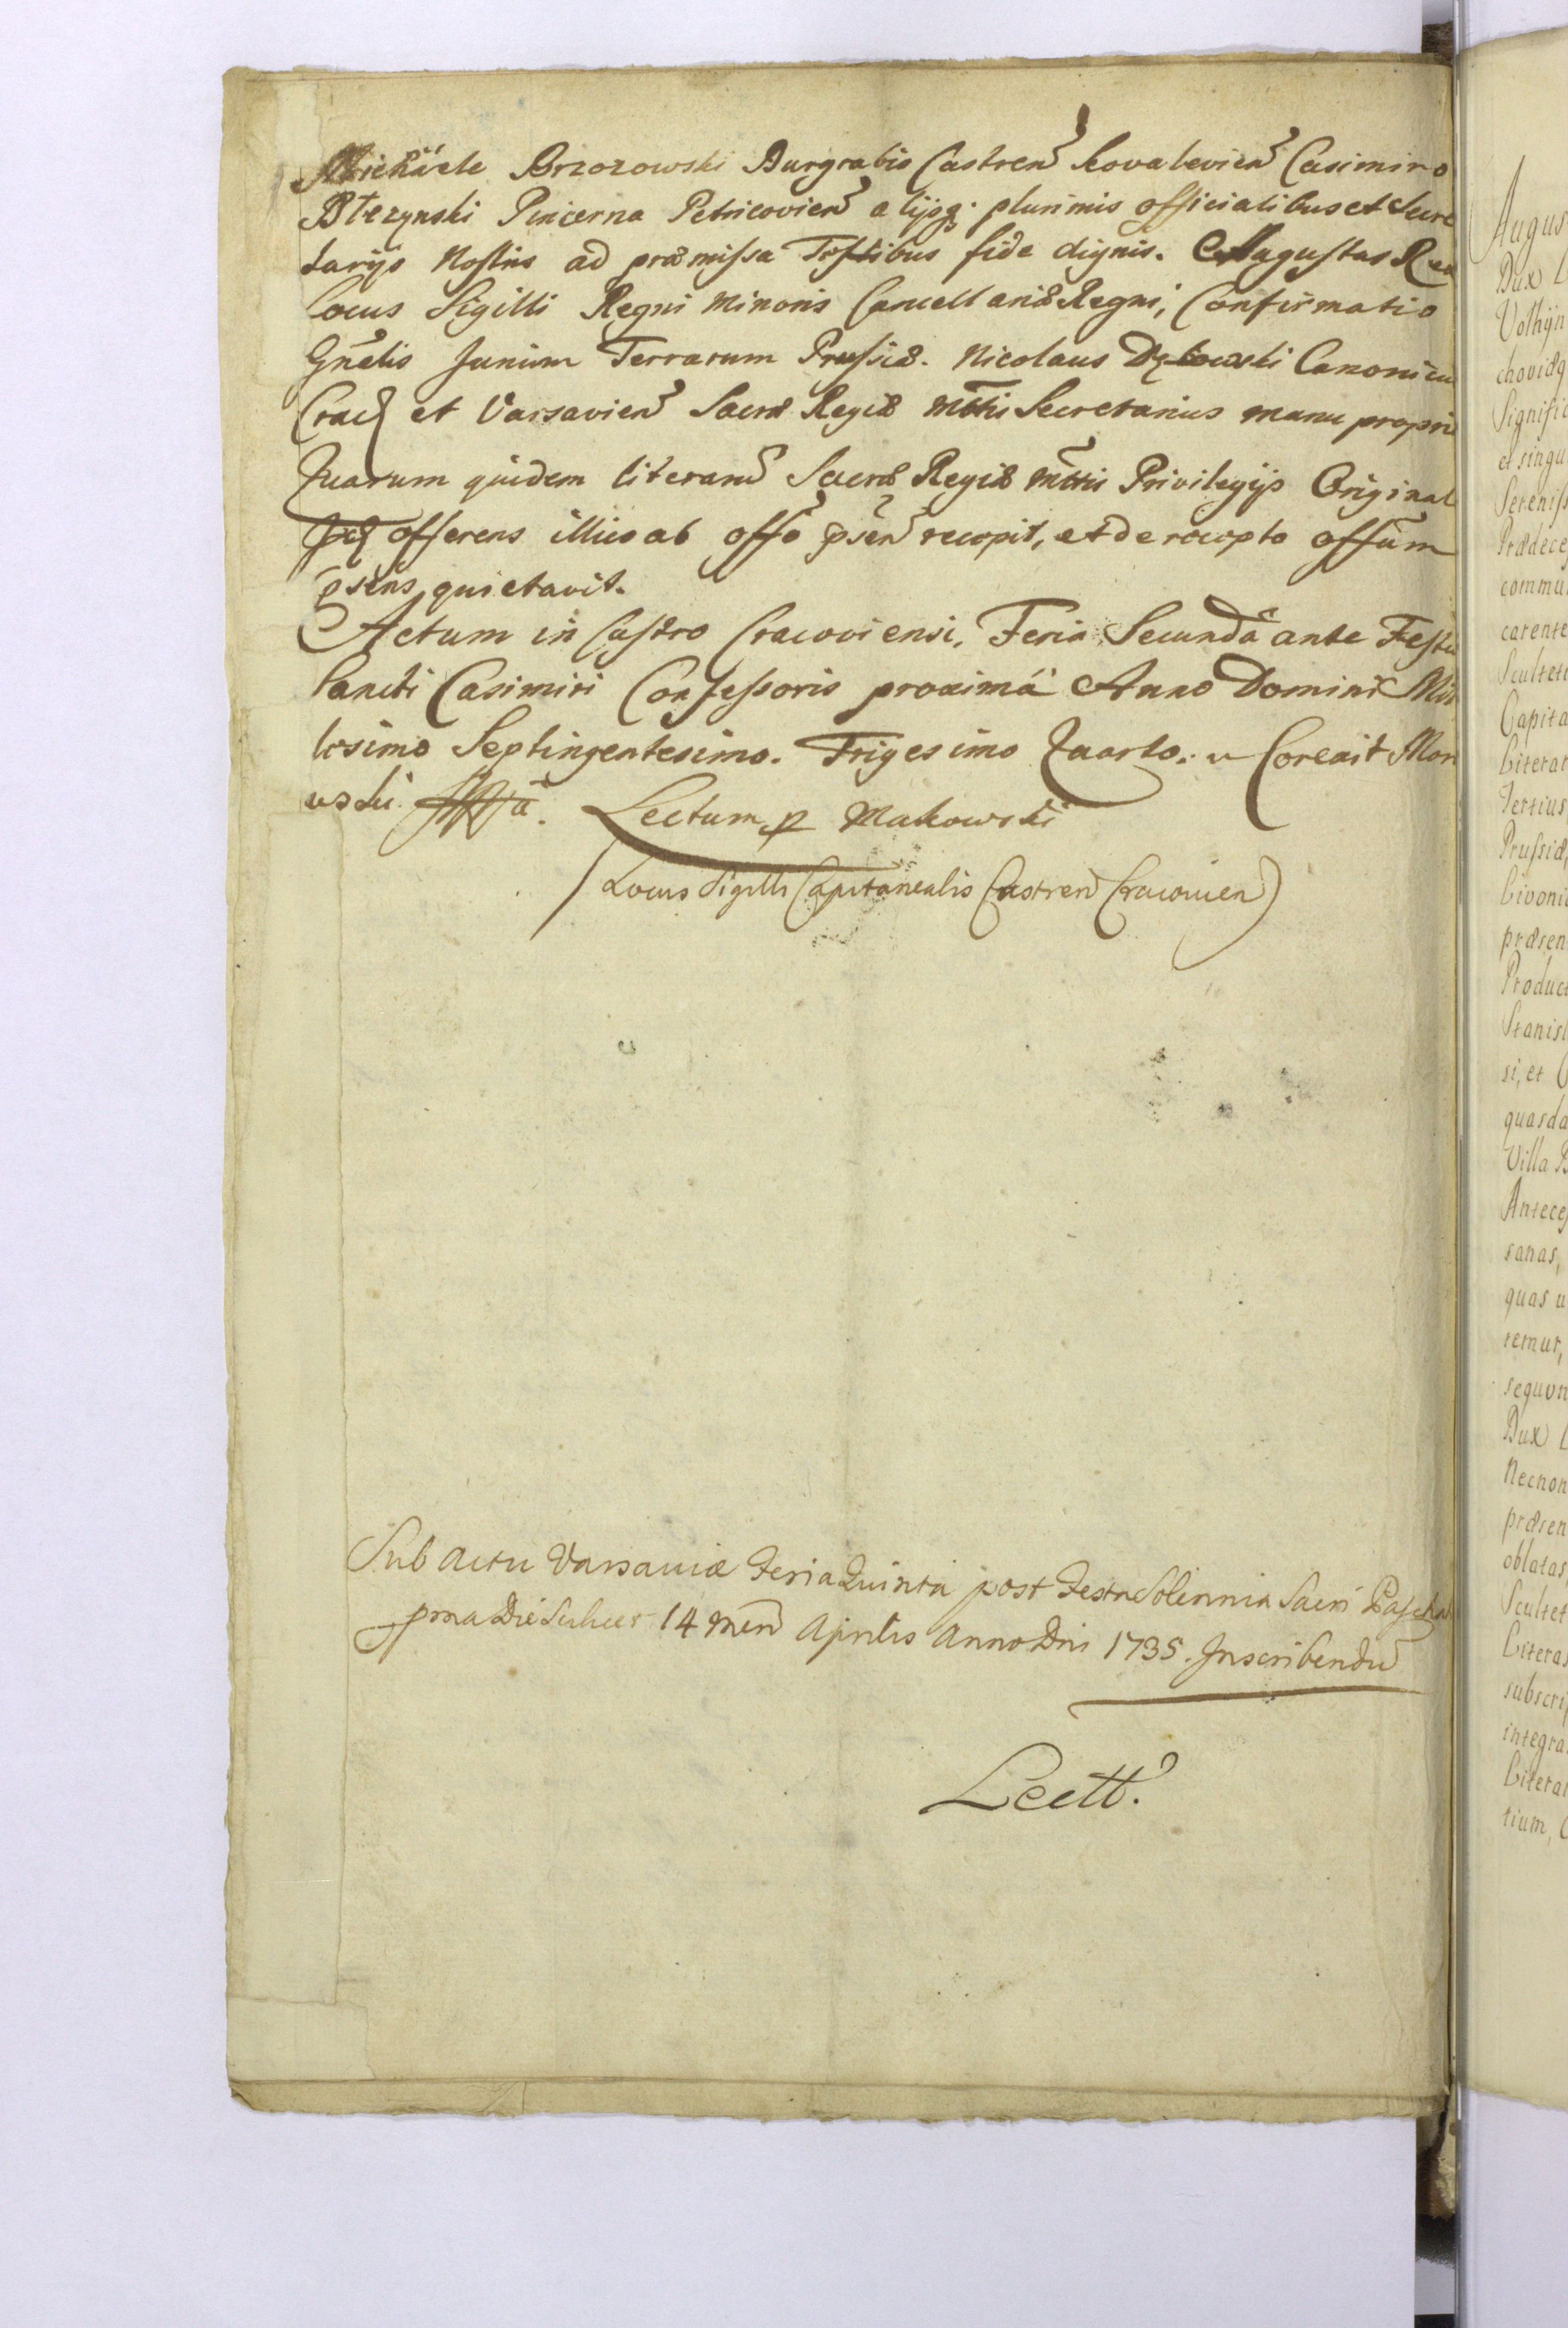 Michäele Brzozowski Burgrabio Castren̄ Kovalevien̄ Casimiro
Błezynski Pincerna Petricovien̄ alijsq; plurimis officialibus et Secre
tarijs Nostris ad præmissa Testibus fide dignis. Augustus Rex
locus Sigilli Regni Minoris Cancellariæ Regni, Confirmatio
Gn̄elis Jurium Terrarum Prussiæ. Nicolaus Dębowski Canonicu
Crac̄ et Varsavien̄ Sacræ Regiæ Mttis Secretarius manu propri
Quarum quidem literarū Sacræ Regiæ Mttis Privilegijs Original
offerens illico ab offo p̄sen̄ recepit, et de recepto offūm
p̄sens quietavit.
Actum in Castro Cracoviensi, Feria Secundâ ante Festu
Sancti Casimiri Confessoris proximâ Anno Domini Mil
lesimo Septingentesimo. Trigesimo Quarto. Corexit Mor
wski Lectum p Makowski
(Locus Sigilli Capitanealis Castren̄ Cracovien)
Sub actu Varsaviæ Feria Quinta post Festa Solennia Sacri Pascha
pma Die Scilicet 14 Men̄ Aprilis Anno Dni 1735. Inscribendū
Lectt.
Augus
Dux L
Volhijn
choviæq
Signific
et singu
Sereniss
Prædece
commu
carente
Sculteti
Capita
Literar
Tertius,
Prussiæ,
Livonia
præsen
Product
Stanisl
si, et
quasda
Villa B
Anteces
sanas,
quas u
remur,
sequun
Dux L
Necnon
præsen
oblatas
Scultet
Literas
subscrip
integra
Literar
tium, C